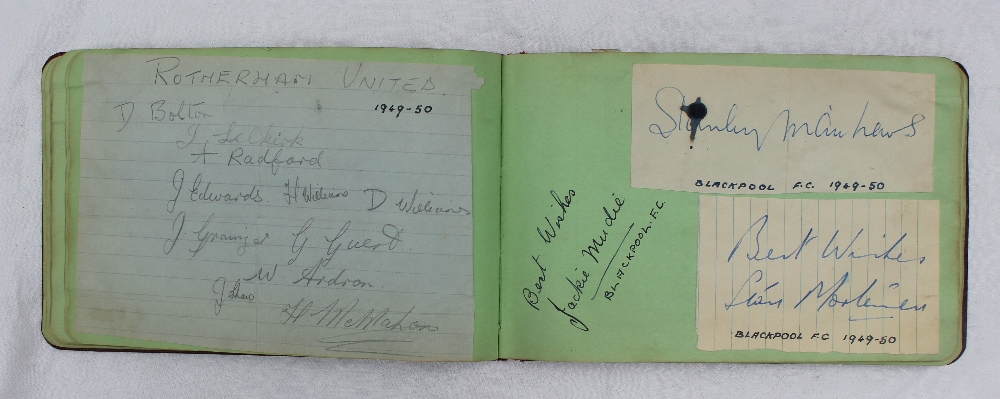 ROTHERHAM UNITED
1949-50
D Bolton
J Selkirk
A Radford
J Edwards. H Williams D Williams
J Grainger G Guest
W Ardron
J Shaw
H McMahon
Best Wishes
Jackie Mudie
BLACKPOOL. F.C.
Stanley Matthews
BLACKPOOL F.C. 1949-50
Best Wishes
Stan Mortensen
BLACKPOOL FC 1949-50